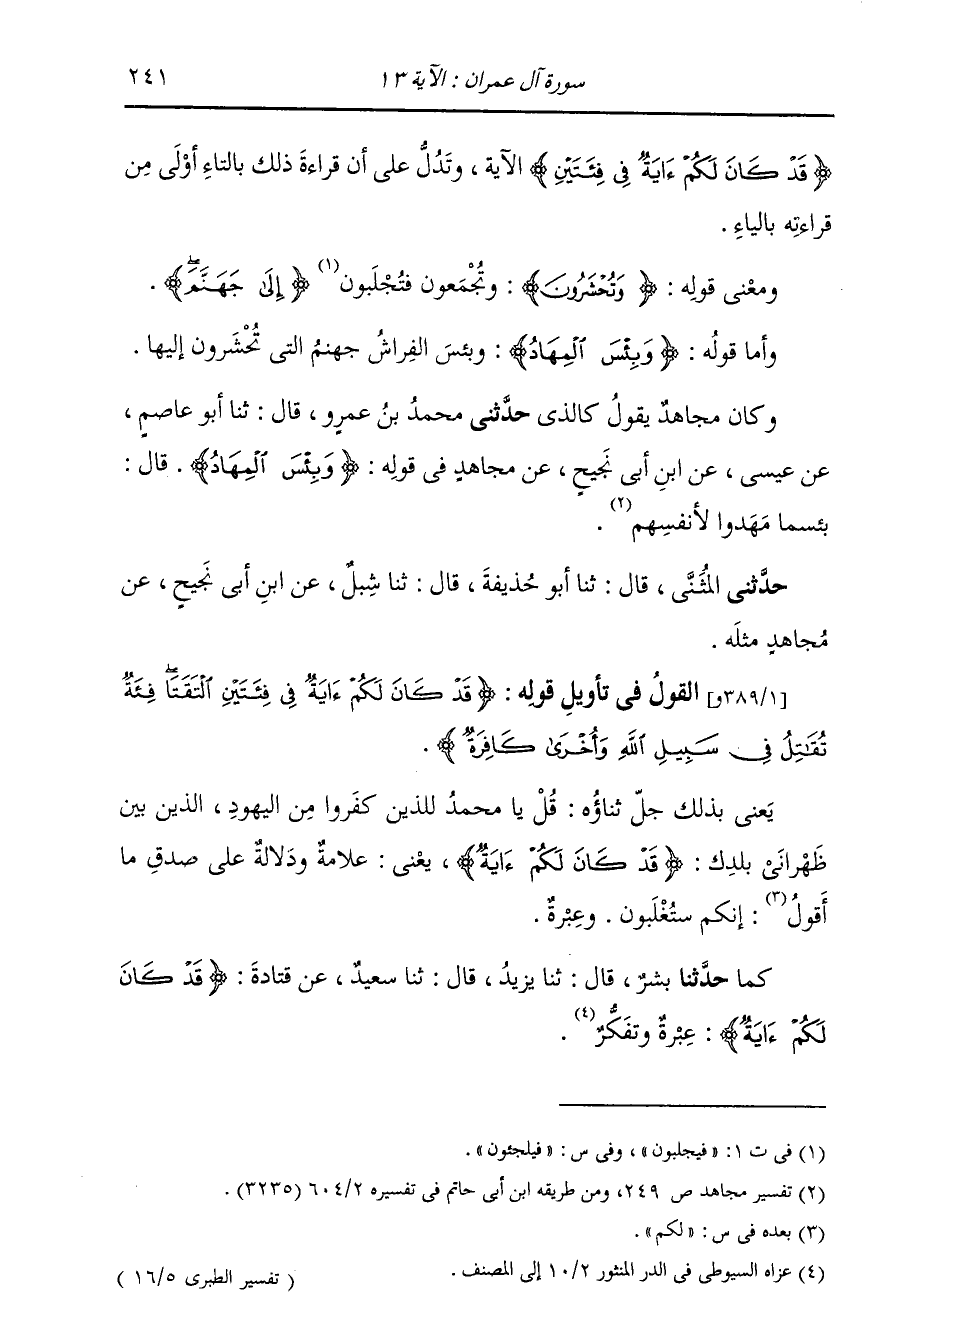 سورة آل عمران : الآية ١٣ ٢٤١
﴿ قَدْ كَانَ لَكُمْ ءَايَةٌ فِى فِئَتَيْنِ ﴾ الآية ، وتَدُلُّ على أن قراءةَ ذلك بالتاءِ أوْلَى مِن
قراءتِه بالياءِ .
ومعْنى قولِه : ﴿ وَتُحْشَرُونَ ﴾ : وتُجْمَعون فتُجْلَبون(١) ﴿ إِلَى جَهَنَّمَ ۖ ﴾ .
وأما قولُه : ﴿ وَبِئْسَ ٱلْمِهَادُ ﴾ : وبئسَ الفِراشُ جهنمُ التى تُحْشَرون إليها .
وكان مجاهدٌ يقولُ كالذى حدَّثنى محمدُ بنُ عمرٍو ، قال : ثنا أبو عاصمٍ ،
عن عيسى ، عن ابنِ أبى نَجيحٍ ، عن مجاهدٍ فى قولِه : ﴿ وَبِئْسَ ٱلْمِهَادُ ﴾ . قال :
بئسما مَهَدوا لأنفسِهم(٢) .
حدَّثنى المُثَنَّى ، قال : ثنا أبو حُذيفةَ ، قال : ثنا شِبلٌ ، عن ابنِ أبى نَجيحٍ ، عن
مُجاهدٍ مثلَه .
[٣٨٩/١و] القولُ فى تأويلِ قولِه : ﴿ قَدْ كَانَ لَكُمْ ءَايَةٌ فِى فِئَتَيْنِ ٱلْتَقَتَا ۖ فِئَةٌ
تُقَٰتِلُ فِى سَبِيلِ ٱللَّهِ وَأُخْرَىٰ كَافِرَةٌ ﴾ .
يَعنى بذلك جلّ ثناؤُه : قُلْ يا محمدُ للذين كفَروا مِن اليهودِ ، الذين بين
ظَهْرانَىْ بلدِك : ﴿ قَدْ كَانَ لَكُمْ ءَايَةٌ ﴾ ، يعْنى : علامةٌ ودَلالةٌ على صدقِ ما
أقولُ(٣) : إنكم ستُغْلَبون . وعِبْرةٌ .
كما حدَّثنا بشرٌ ، قال : ثنا يزيدُ ، قال : ثنا سعيدٌ ، عن قتادةَ : ﴿ قَدْ كَانَ
لَكُمْ ءَايَةٌ ﴾ : عِبْرةٌ وتفَكُّرٌ(٤) .
(١) فى ت ١: « فيجلبون » ، وفى س : « فيلجئون » .
(٢) تفسير مجاهد ص ٢٤٩، ومن طريقه ابن أبى حاتم فى تفسيره ٦٠٤/٢ (٣٢٣٥) .
(٣) بعده فى س : « لكم » .
(٤) عزاه السيوطى فى الدر المنثور ١٠/٢ إلى المصنف . ( تفسير الطبرى ١٦/٥ )